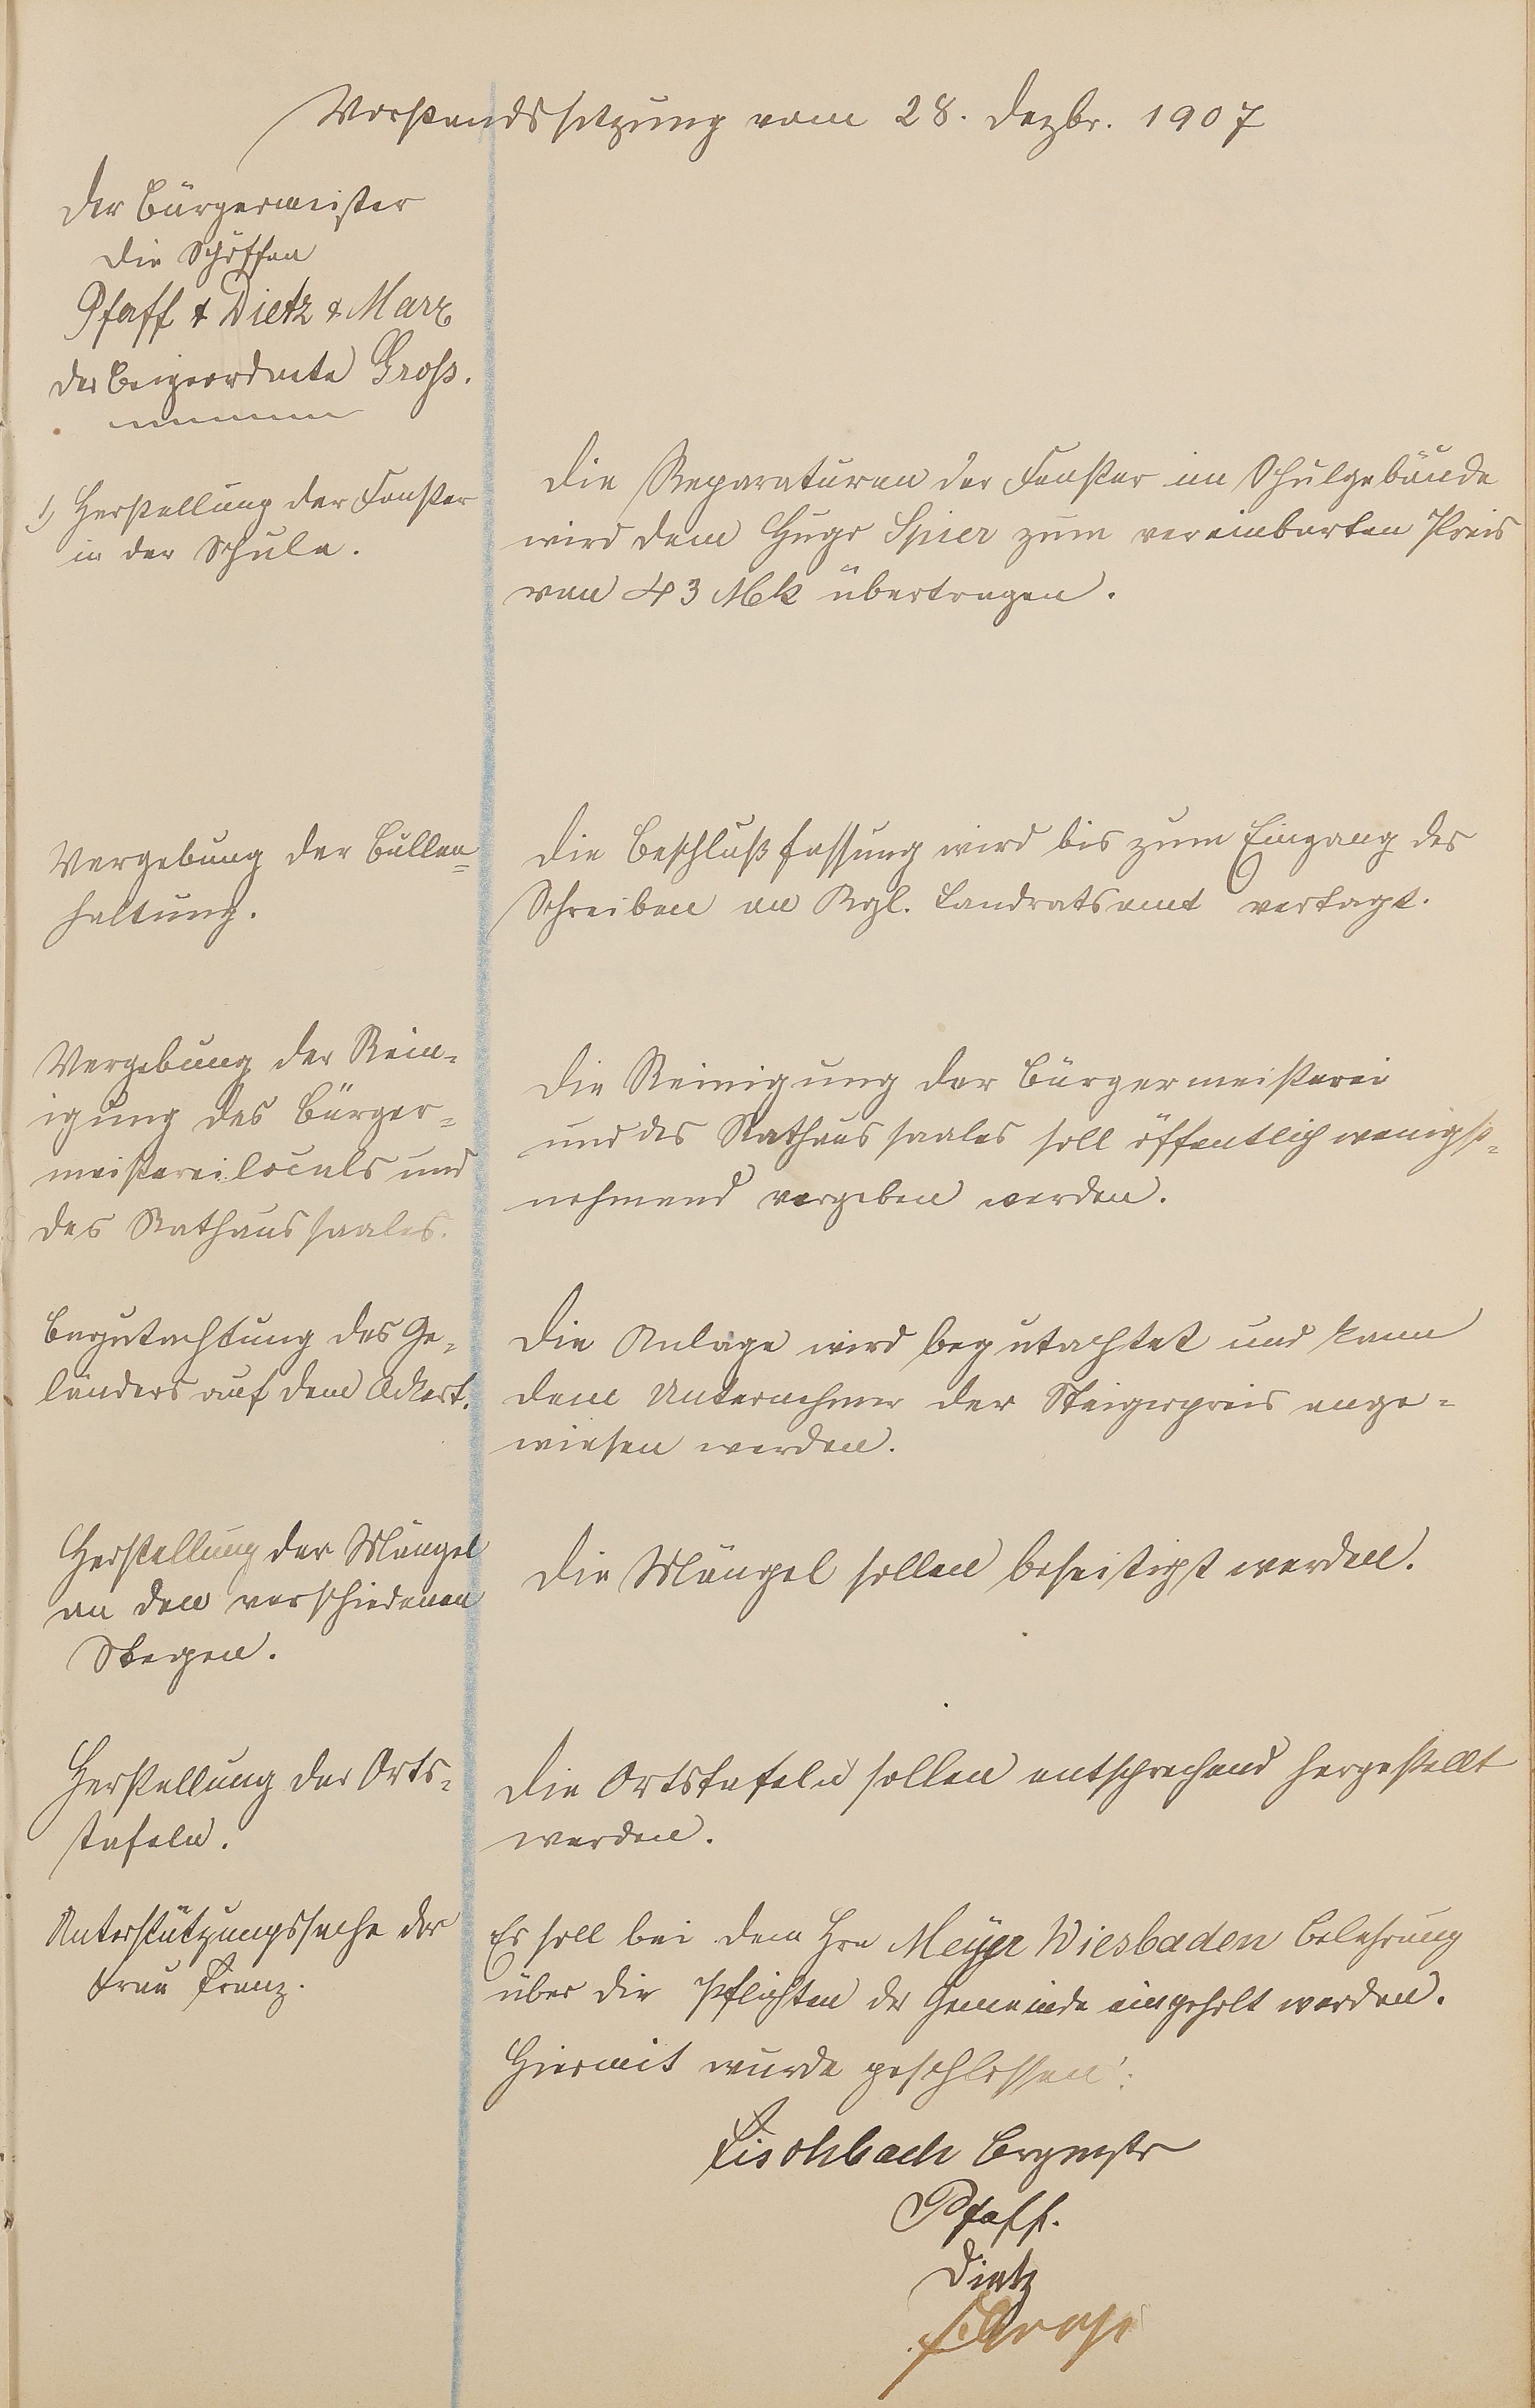 Vorstandssitzung vom 28. Dezbr. 1907
Der Bürgermeister
Die Schöffen
Pfaff & Dietz & Marx
der Beigeordnete Gross.
1) Herstellung der Fenster
in der Schule.
Die Reparaturen der Fenster im Schulgebäude
wird dem Hugo Spier zum vereinbarten Preis
von 43 Mk übertragen.
Vergebung der Bullen=
haltung.
Die Beschlußfassung wird bis zum Eingang des
Schreiben an Kgl. Landratsamt vertagt.
Vergebung der Rein-
igung des Bürger-
meistereilocals und
des Rathaussaales.
Die Reinigung der Bürgermeisterei
und des Rathaussaales soll öffentlich wenigst-
nehmend vergeben werden.
Begutachtung des Ge-
länders auf dem
Die Anlage wird begutachtet und kann
dem Unternehmer der Steigerpreis ange-
wiesen werden.
Herstellung der Mängel
an den verschiedenen
Stegen.
Die Mängel sollen beseitigt werden.
Herstellung der Orts-
tafeln.
Die Ortstafeln sollen entsprechend hergestellt
werden.
Unterstützungssache der
Frau Franz.
Es soll bei dem Hrn Meyer Wiesbaden Belehrung
über die Pflichten der Gemeinde eingeholt werden.
Hiermit wurde geschlossen:
Fischbach Brgmstr
Pfaff.
Dietz
Gross